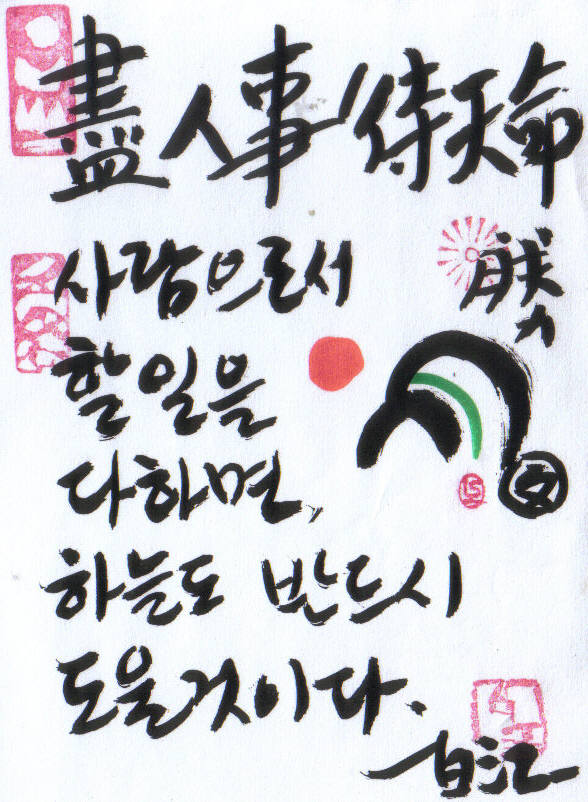 盡人事待天命
사람으로서
할 일을
다하면,
하늘도 반드시
도울것이다.
白江